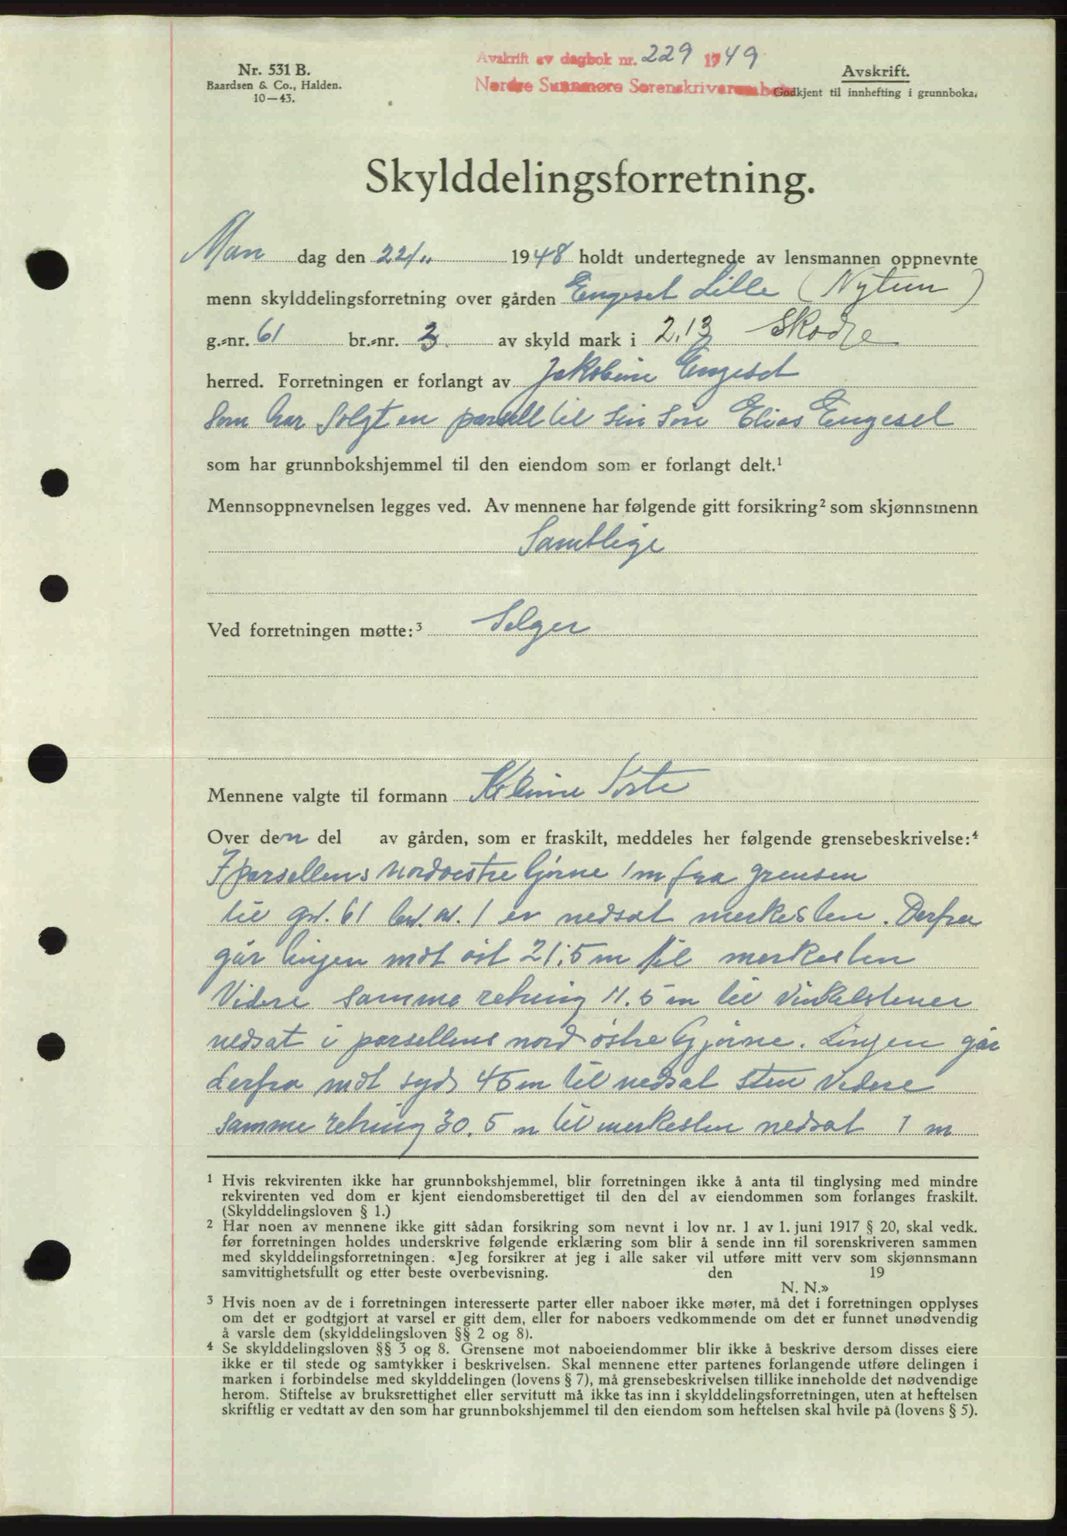 Nr. 531 B.
Baardsen & Co., Halden.
10—43.
Avskrift av dagbok nr. 229 1949
Nordre Sunnmøre Sorenskriverembete
Avskrift.
Godkjent til innhefting i grunnboka.
Skylddelingsforretning.
Man dag den 22/11 1948 holdt undertegnede av lensmannen oppnevnte
menn skylddelingsforretning over gården Engeset Lille (Nytun)
g.-nr. 61 br.-nr. 3 av skyld mark i 2,13 Skodje
herred. Forretningen er forlangt av Jakobine Engeset
som har solgt en parsell til sin søn Elias Engeset
som har grunnbokshjemmel til den eiendom som er forlangt delt.¹
Mennsoppnevnelsen legges ved. Av mennene har følgende gitt forsikring² som skjønnsmenn
Samtlige
Ved forretningen møtte:³ Selger
Mennene valgte til formann
Over den del av gården, som er fraskilt, meddeles her følgende grensebeskrivelse:⁴
I parsellens nordvestre hjørne 1 m fra grensen
til gr. 61 br. nr. 1 er nedsat merkesten. Derfra
går linjen mot øst 21.5 m til merkesten
Videre samme retning 11.5 m til vinkelstener
nedsat i parsellens nord østre hjørne. Linjen går
derfra mot syd 46 m til nedsat sten videre
samme retning 30.5 m til merkesten nedsat 1 m
1 Hvis rekvirenten ikke har grunnbokshjemmel, blir forretningen ikke å anta til tinglysing med mindre
rekvirenten ved dom er kjent eiendomsberettiget til den del av eiendommen som forlanges fraskilt.
(Skylddelingsloven § 1.)
2 Har noen av mennene ikke gitt sådan forsikring som nevnt i lov nr. 1 av 1. juni 1917 § 20, skal vedk.
før forretningen holdes underskrive følgende erklæring som blir å sende inn til sorenskriveren sammen
med skylddelingsforretningen. «Jeg forsikrer at jeg i alle saker vil utføre mitt verv som skjønnsmann
samvittighetsfullt og etter beste overbevisning. den 19
N. N.»
3 Hvis noen av de i forretningen interesserte parter eller naboer ikke møter, må det i forretningen opplyses
om det er godtgjort at varsel er gitt dem, eller for naboers vedkommende om det er funnet unødvendig
å varsle dem (skylddelingsloven §§ 2 og 8).
4 Se skylddelingsloven §§ 3 og 8. Grensene mot naboeiendommer blir ikke å beskrive dersom disses eiere
ikke er til stede og samtykker i beskrivelsen. Skal mennene etter partenes forlangende utføre delingen i
marken i forbindelse med skylddelingen (lovens § 7), må grensebeskrivelsen tillike inneholde det nødvendige
herom. Stiftelse av bruksrettighet eller servitutt må ikke tas inn i skylddelingsforretningen, uten at heftelsen
skriftlig er vedtatt av den som har grunnbokshjemmel til den eiendom som heftelsen skal hvile på (lovens § 5).